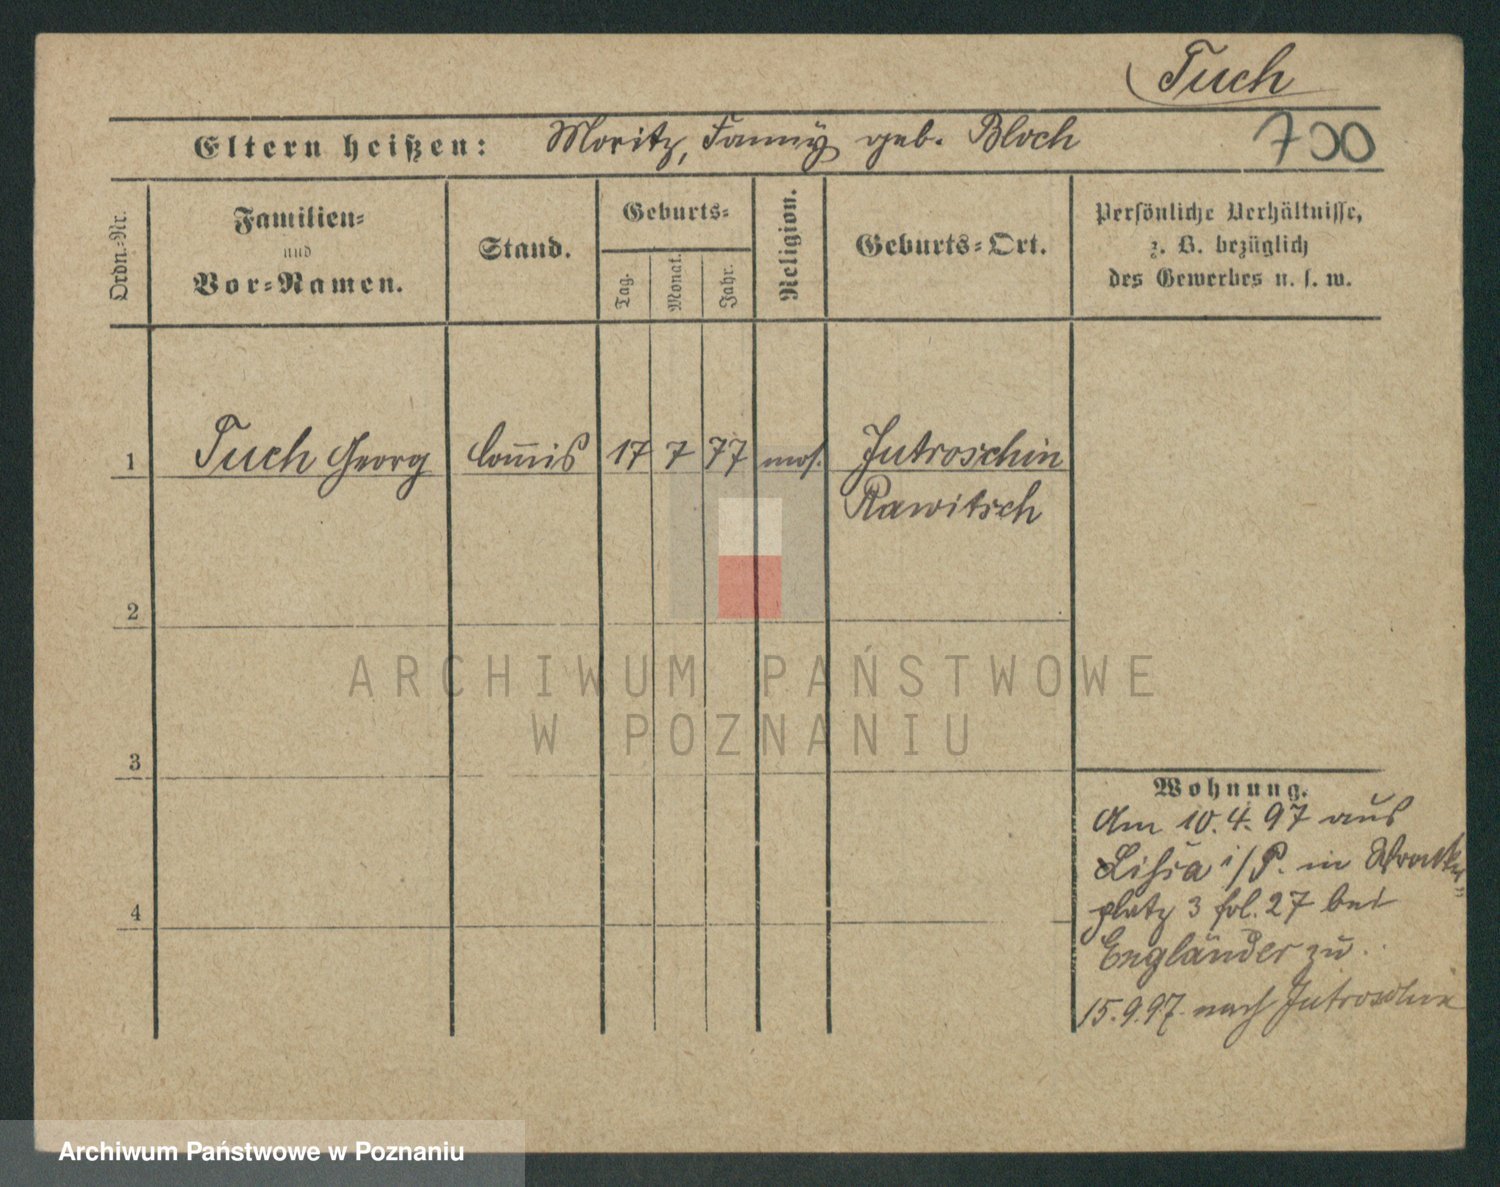 Tuch
Eltern heißen: Moritz, Fanny geb. Bloch
700
Ordn.=Nr.
Familien=
und
Vor=Namen.
Stand.
Geburts=
Tag.
Monat.
Jahr.
Religion.
Geburts=Ort.
Persönliche Verhältnisse,
z. B. bezüglich
des Gewerbes u. s. w.
1 Tuch Georg Com̅is 17 7 77 mos. Jutroschin
Rawitsch
2
3
4
Wohnung.
Am 10.4.97 aus
Lissa i/P. in
platz 3 fol. 27 bei
Engländer zu.
15.9.97. nach Jutroschin
ARCHIWUM PAŃSTWOWE
W POZNANIU
Archiwum Państwowe w Poznaniu